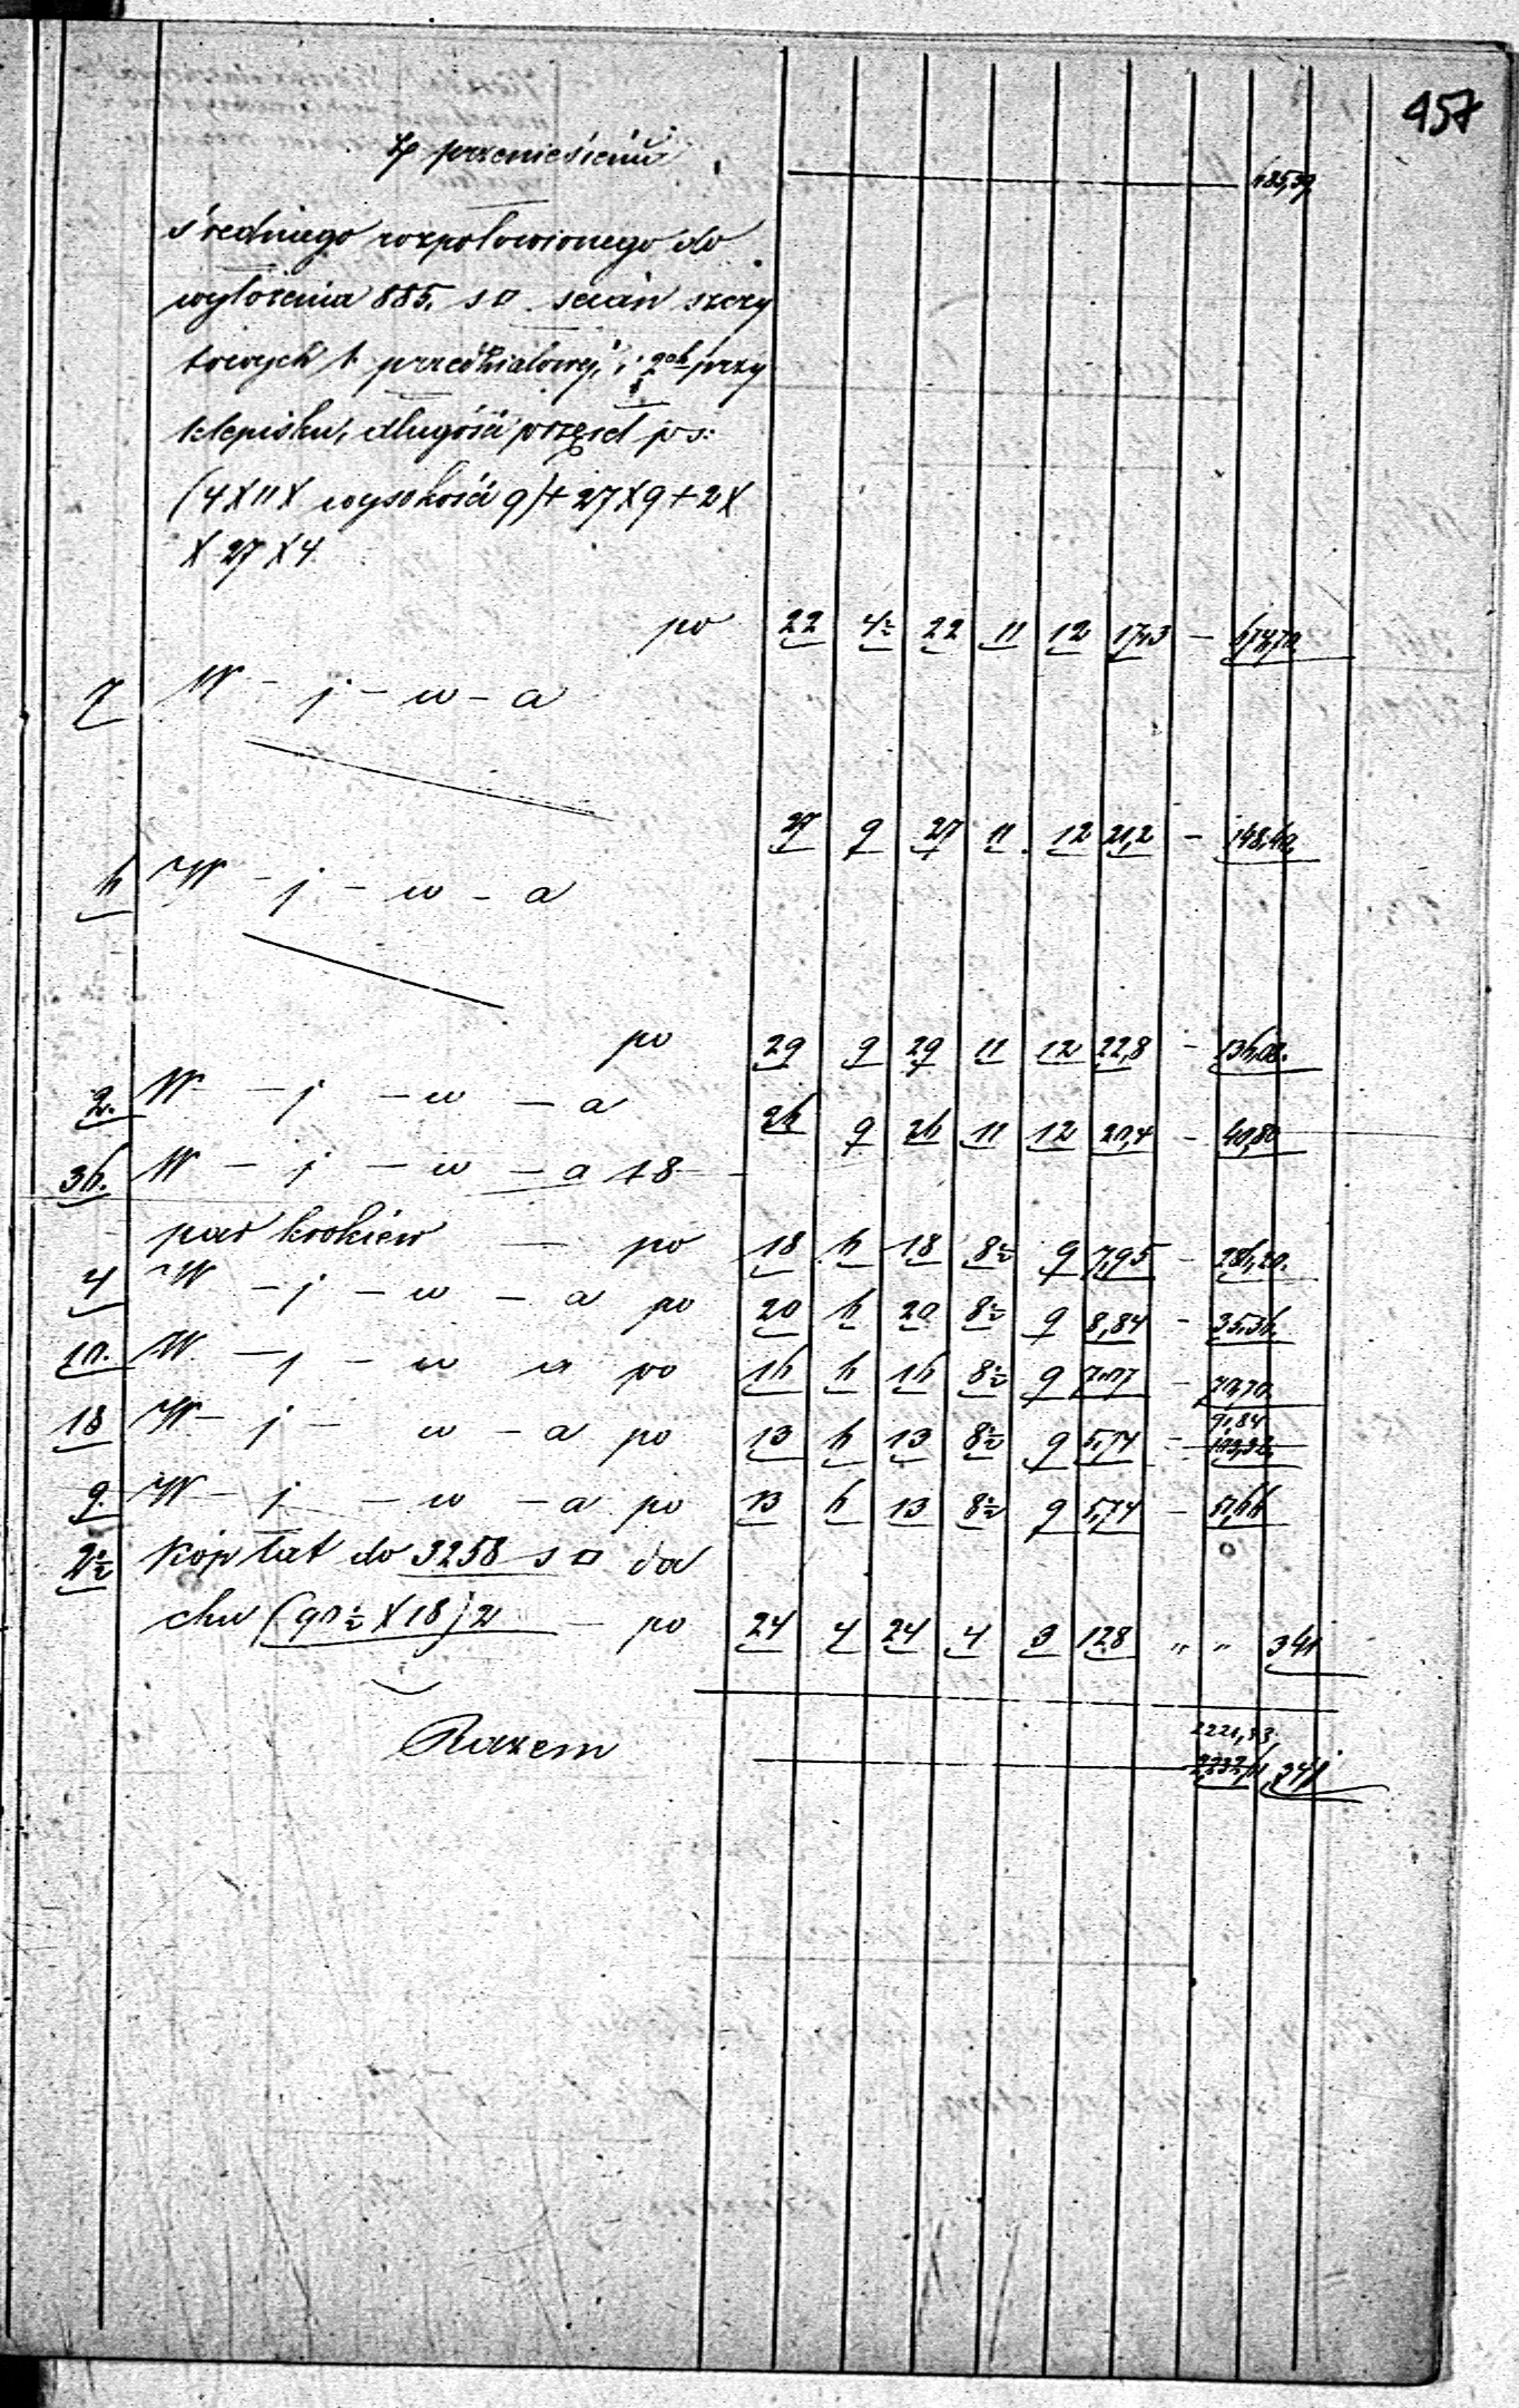 457
Z przeniesienia 485,39
średniego rozpołowionego do
wyłożenia 885. s□. ścian szczy
towych 1 przedziałowej, i 2ch przy
klepisku, długości przęseł ps:
(4X11X wysokość 9)+27X9+2X
X27X4.
po 22 4½ 22 11 12 17,3 – 674,70
7 W – j – w – a
27 9 27 11 12 21,2 – 148,40
6 W – j – w – a
po 29 9 29 11 12 22,8 – 136,80.
2. W – j – w – a
26 9 26 11 12 20,4 – 40,80
36. W – j – w – a 18
par krokiew – po 18 6 18 8½ 9 7,95 – 286,20.
4 W – j – w – a po 20 6 20 8½ 9 8,84 – 35,36.
10. W. – j – w a po 16 6 16 8½ 9 7,07 – 70,70
91,84
18 W – j – w – a po 13 6 13 8½ 9 5,74 – 103,32
9. W – j – w – a po 13 6 13 8½ 9 5,74 – 51,66
2½ Kóp łat do 3258 s□ da
chu (90½X18)2 – po 24 4 24 4 3 128 „ „ 341
2221,33
Razem 341